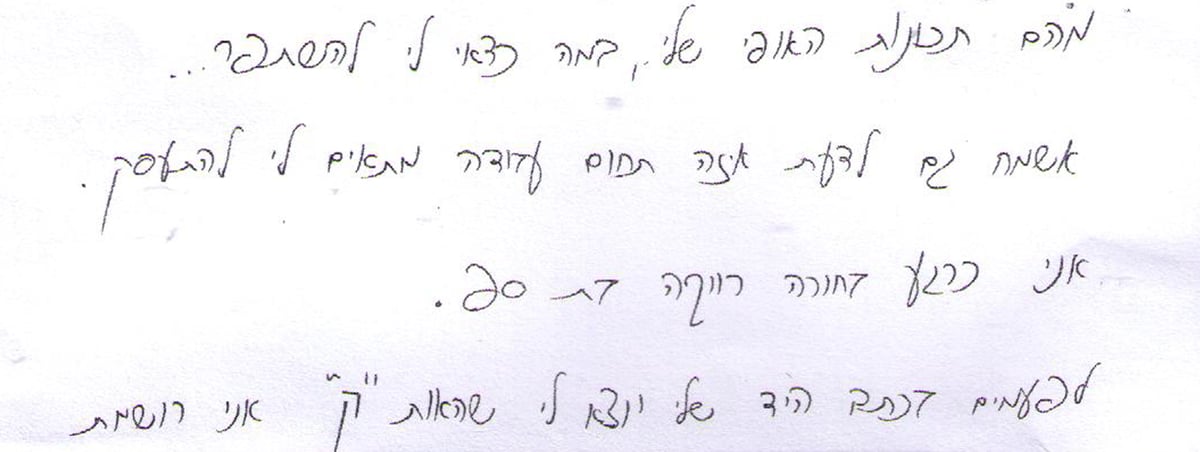 מהם תכונות האופי שלי, במה כדאי לי להשתפר...
אשמח גם לדעת איזה תחום עבודה מתאים לי להתעסק.
אני כרגע בחורה רווקה בת 20.
לפעמים בכתב היד שלי יוצא לי שהאות "ק" אני רושמת